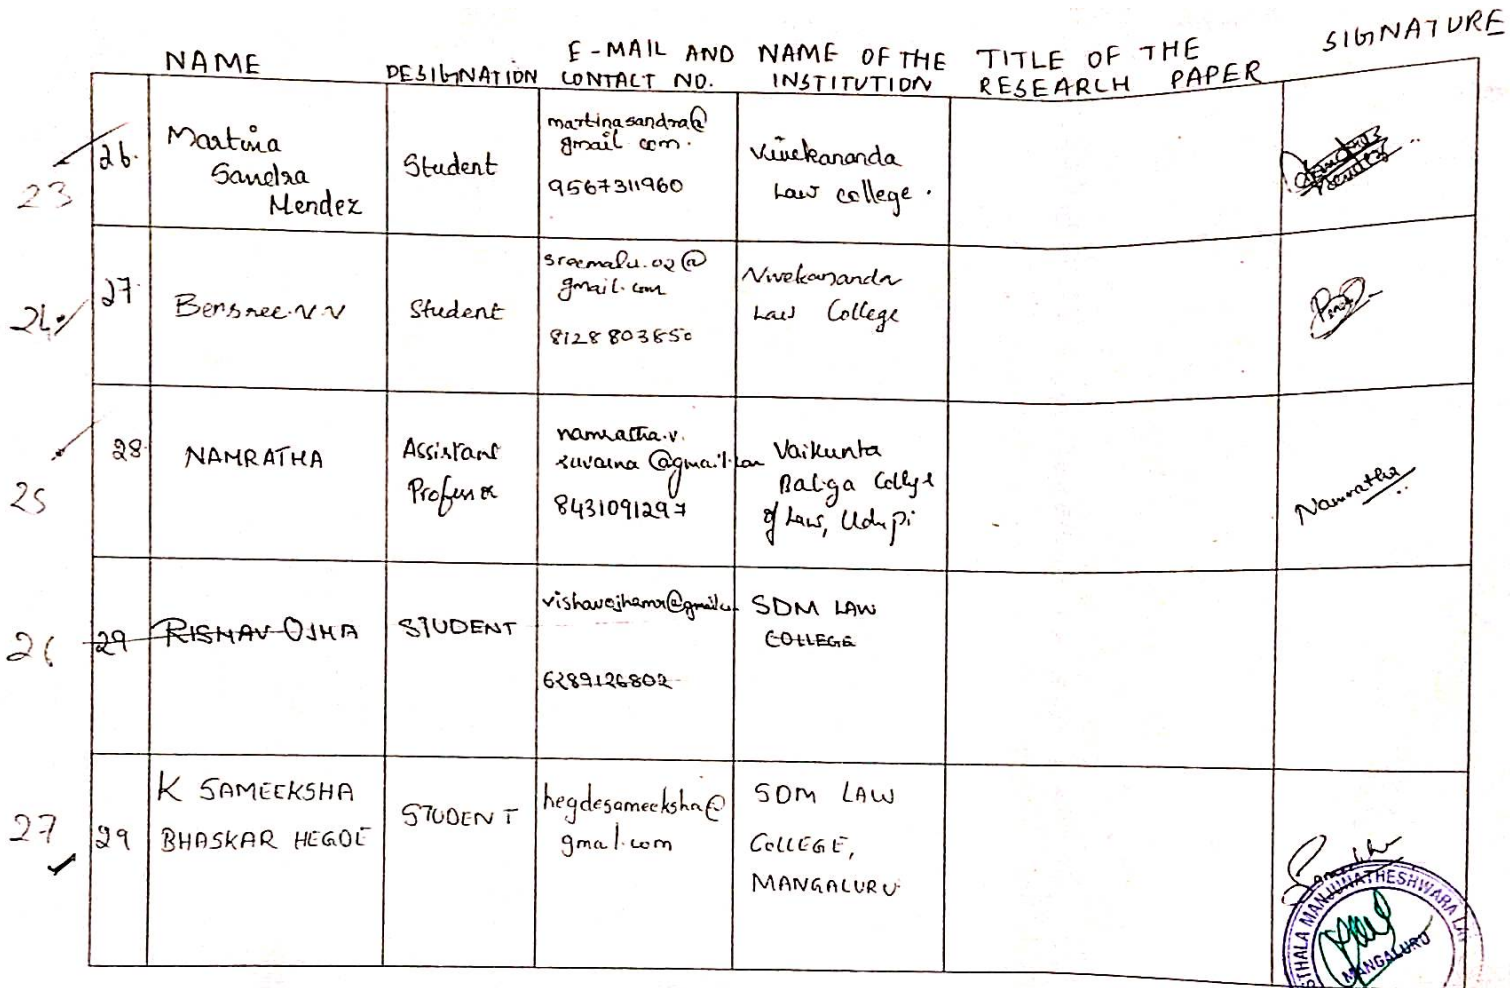 SIGNATURE
NAME
DESIGNATION
E-MAIL AND
CONTACT NO.
NAME OF THE
INSTITUTION
TITLE OF THE
RESEARCH PAPER
23
26.
Martina
Sandra
Mendez
Student
martinasandra@
gmail com.
9567311960
Vivekananda
Law college.
24
27.
Bensree.V.V
Student
sreemalu.02@
gmail.com
8128803850
Vivekananda
Law College
25
28.
NAMRATHA
Assistant
Professor
namratha.v.
suvarna@gmail.com
8431091297
Vaikunta
Baliga College
of Law, Udupi
Namratha
26
29
RISHAV OJHA
STUDENT
6289126802
SDM LAW
COLLEGE
27
29
K SAMEEKSHA
BHASKAR HEGDE
STUDENT
hegdesameeksha@
gmail.com
SDM LAW
COLLEGE,
MANGALURU
STHALA MANJUNATHESHWARA LA
MANGALURU